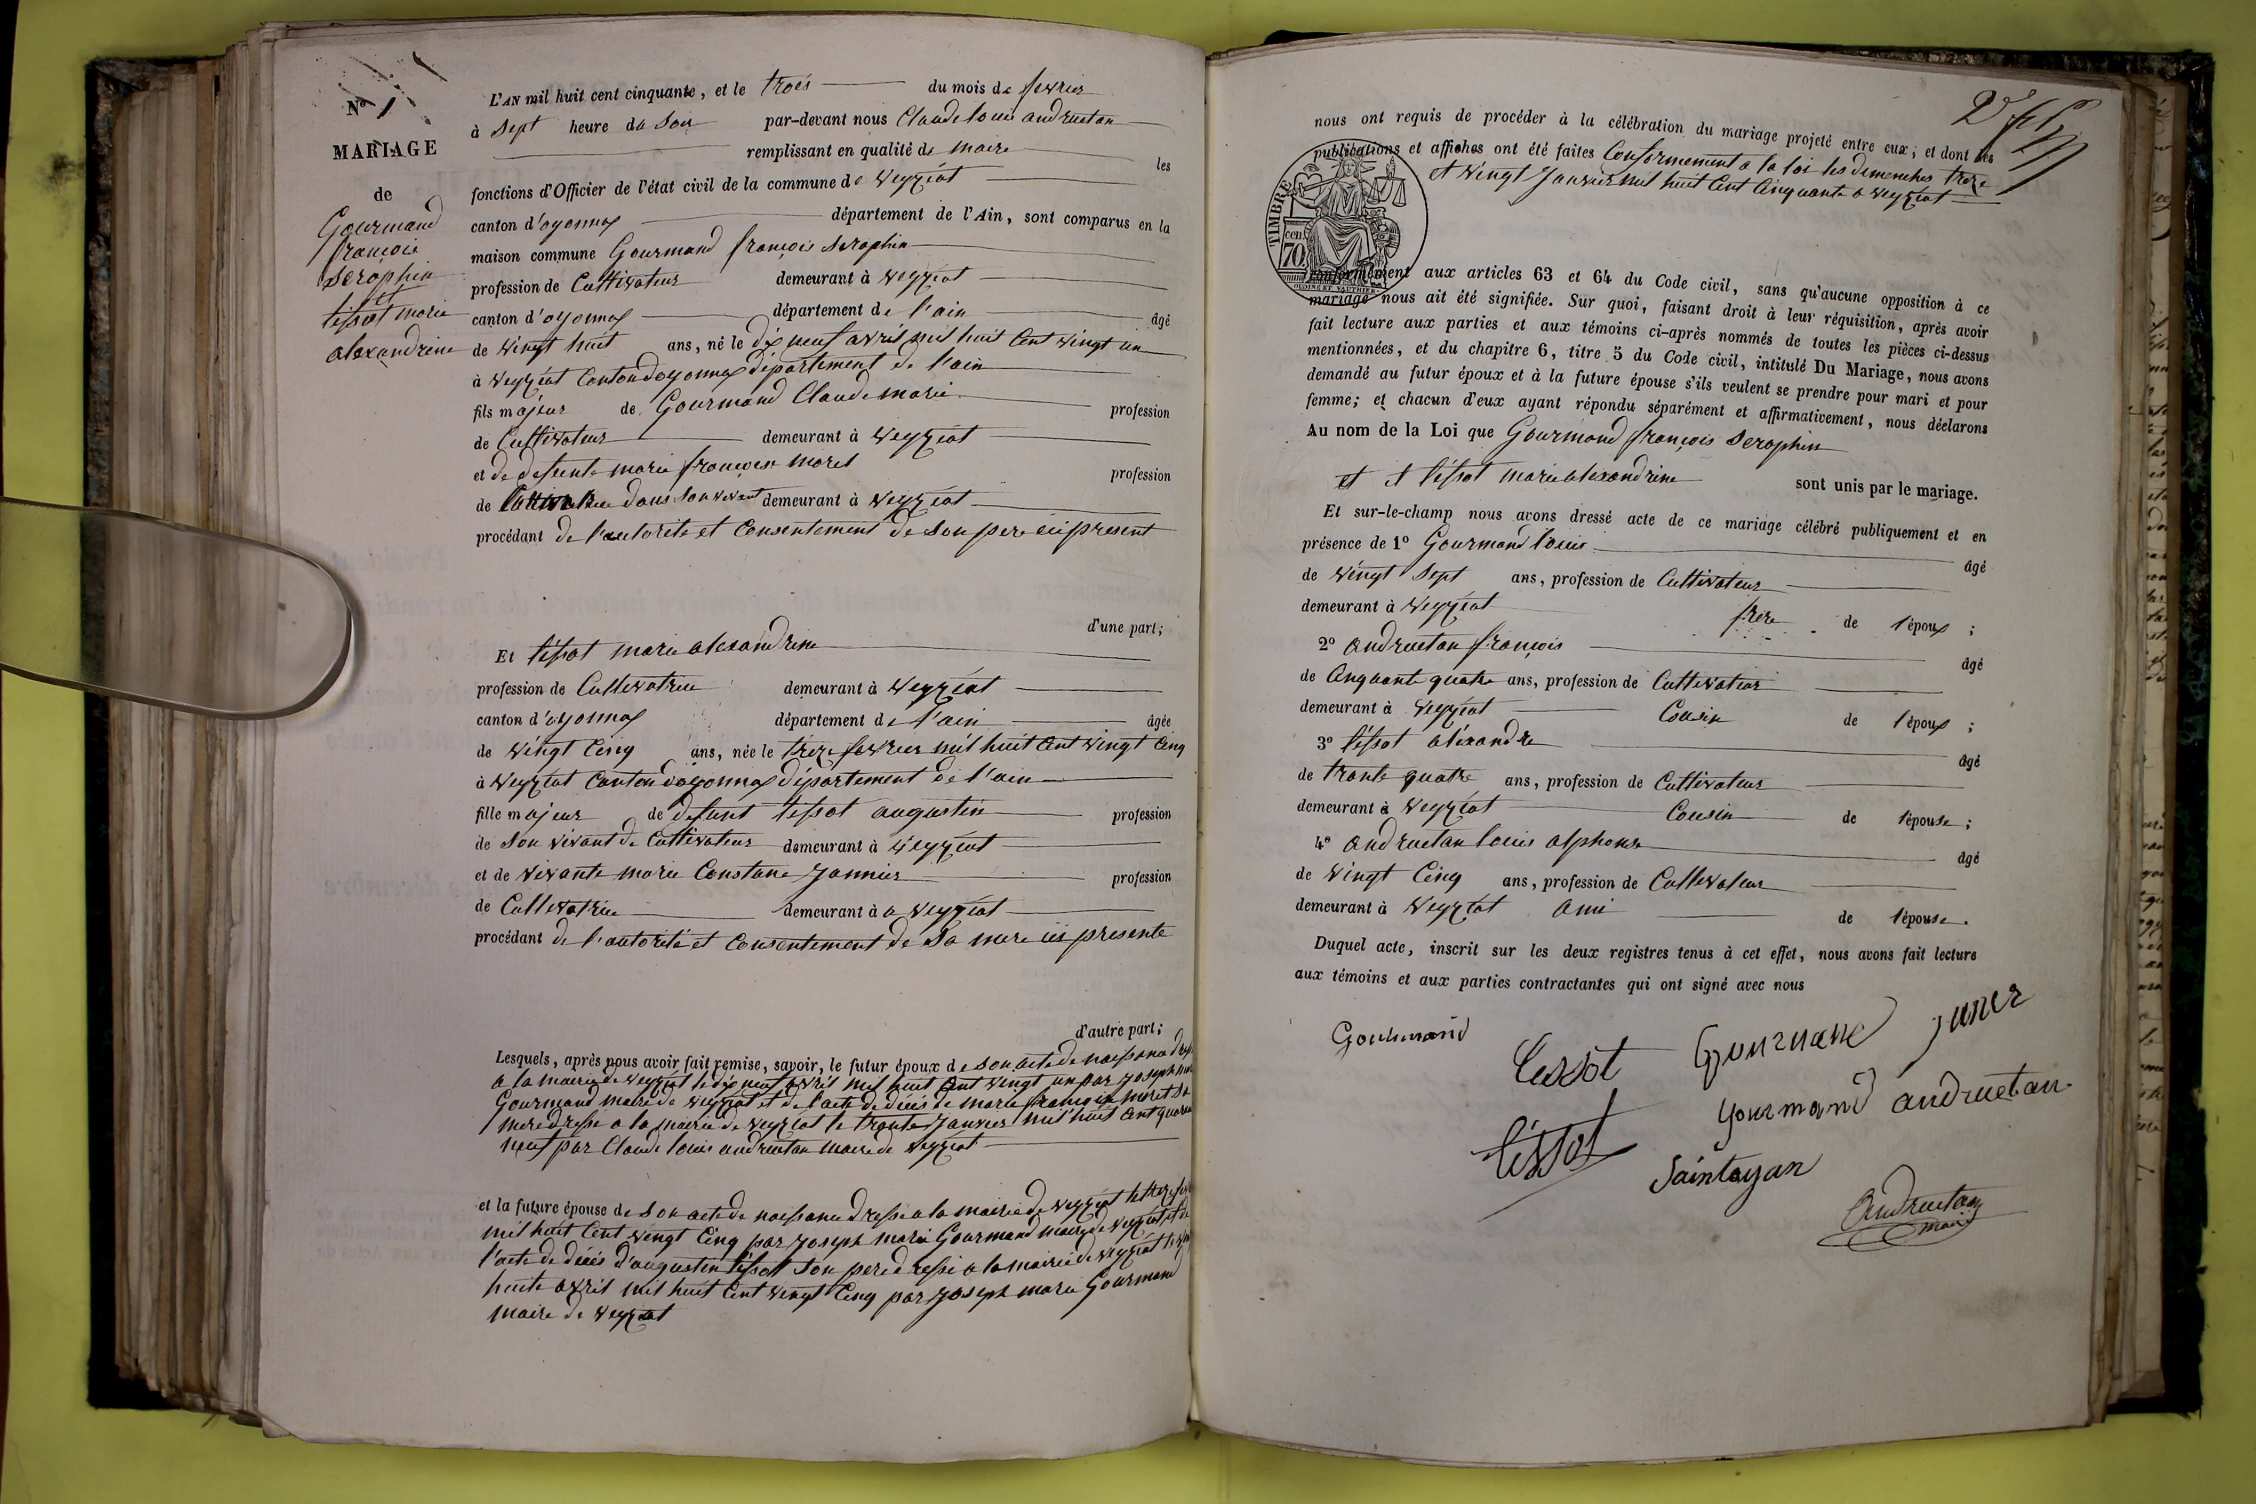 N° 1
MARIAGE
de
Gourmand
françois
Seraphin
et
tissot marie
alexandrine
L'AN mil huit cent cinquante, et le trois du mois de fevrier
à Sept heure du Soir par-devant nous Claude louis andruetan
remplissant en qualité de maire les
fonctions d'Officier de l'état civil de la commune de veyziat
canton d'oyonnax département de l'Ain, sont comparus en la
maison commune Gourmand françois Seraphin
profession de Cultivateur demeurant à veyziat
canton d'oyonnax département de l'ain âgé
de vingt huit ans, né le dix neuf avril mil huit Cent vingt un
à veyziat Canton d'oyonnax département de l'ain
fils majeur de Gourmand Claude marie profession
de Cultivateur demeurant à veyziat
et de defeunte marie françoise moret profession
de Cultivatrice dans son vivant demeurant à veyziat
procédant de l'autorité et Consentement de Son pere ici present
d'une part;
Et tissot marie alexandrine
profession de Cultivatrice demeurant à veyziat
canton d'oyonnax département de l'ain âgée
de vingt Cinq ans, née le treize fevrier mil huit Cent vingt Cinq
à veyziat Canton d'oyonnax département de l'ain
fille majeur de defunt tissot augustin profession
de Son vivant de Cultivateur demeurant à veyziat
et de vivante marie Constane Jannier profession
de Cultivatrice demeurant à a veyziat
procédant de l'autorité et Consentement de Sa mere ici presente
d'autre part;
Lesquels, après nous avoir fait remise, savoir, le futur époux de son acte de naissance dressé
a la mairie de veyziat le dix neuf avril mil huit Cent vingt un par joseph marie
Gourmand maire de veyziat et de l'acte de décés de marie françoise moret Sa
mere dressé a la mairie de veyziat le trente Janvier mil huit Cent quarante
neuf par Claude louis andruetan maire de veyziat
et la future épouse de Son acte de naissance dressé a la mairie de veyziat le treize fevrier
mil huit Cent vingt Cinq par joseph marie Gourmand maire de veyziat et de
l'acte de décés d'augustin tissot Son pere dressé a la mairie de veyziat le vingt
huit avril mil huit Cent vingt Cinq par joseph marie Gourmand
maire de veyziat
nous ont requis de procéder à la célébration du mariage projeté entre eux; et dont les
publications et affiches ont été faites Conformement a la loi les dimenches treize
et vingt Janvier mil huit Cent Cinquante a veyziat
TIMBRE
cen
70
conformément aux articles 63 et 64 du Code civil, sans qu'aucune opposition à ce
mariage nous ait été signifiée. Sur quoi, faisant droit à leur réquisition, après avoir
fait lecture aux parties et aux témoins ci-après nommés de toutes les pièces ci-dessus
mentionnées, et du chapitre 6, titre 5 du Code civil, intitulé Du Mariage, nous avons
demandé au futur époux et à la future épouse s'ils veulent se prendre pour mari et pour
femme; et chacun d'eux ayant répondu séparément et affirmativement, nous déclarons
Au nom de la Loi que Gourmand françois Seraphin
et et tissot marie alexandrine sont unis par le mariage.
Et sur-le-champ nous avons dressé acte de ce mariage célébré publiquement et en
présence de 1° Gourmand louis âgé
de vingt Sept ans, profession de Cultivateur
demeurant à veyziat frère de l'époux ;
2° andruetan françois âgé
de Cinquante quatre ans, profession de Cultivateur
demeurant à veyziat Cousin de l'époux ;
3° tissot aléxandre âgé
de trente quatre ans, profession de Cultivateur
demeurant à veyziat Cousin de l'épouse ;
4° andruetan louis alphonse âgé
de vingt Cinq ans, profession de Cultivateur
demeurant à veyziat ami de l'épouse.
Duquel acte, inscrit sur les deux registres tenus à cet effet, nous avons fait lecture
aux témoins et aux parties contractantes qui ont signé avec nous
Gourmand
tessot Gourmand
tissot gourmand andruetan
Saintoyan
Andruetan
maire